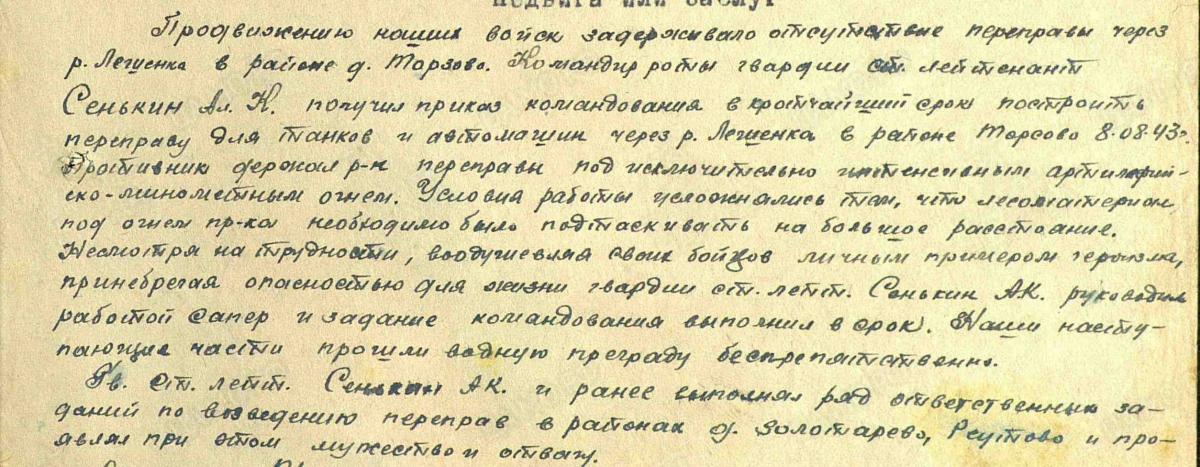 подвига или заслуг
Продвижению наших войск задерживало отсутствие переправы через
р. Легшенка в районе д. Торзово. Командир роты гвардии ст. лейтенант
Сенькин Ал. К. получил приказ командования в кротчайший срок построить
переправу для танков и автомашин через р. Легшенка в районе Торсово 8.08.43г.
Противник держал р-н переправы под исключительно интенсивным артилерий-
ско-минометным огнем. Условия работы усложнялись тем, что лесоматериал
под огнем пр-ка необходимо было подтаскивать на большое расстояние.
Несмотря на трудности, воодушевляя своих бойцов личным примером героизма,
принебрегая опасностью для жизни гвардии ст. лейт. Сенькин А.К. руководил
работой сапер и задание командования выполнил в срок. Наши насту-
пающие части прошли водную преграду беспрепятственно.
Гв. ст. лейт. Сенькин А.К. и ранее выполнял ряд ответственных за-
даний по возведению переправ в районах д. Золотарево, Реутово и про-
являл при этом мужество и отвагу.